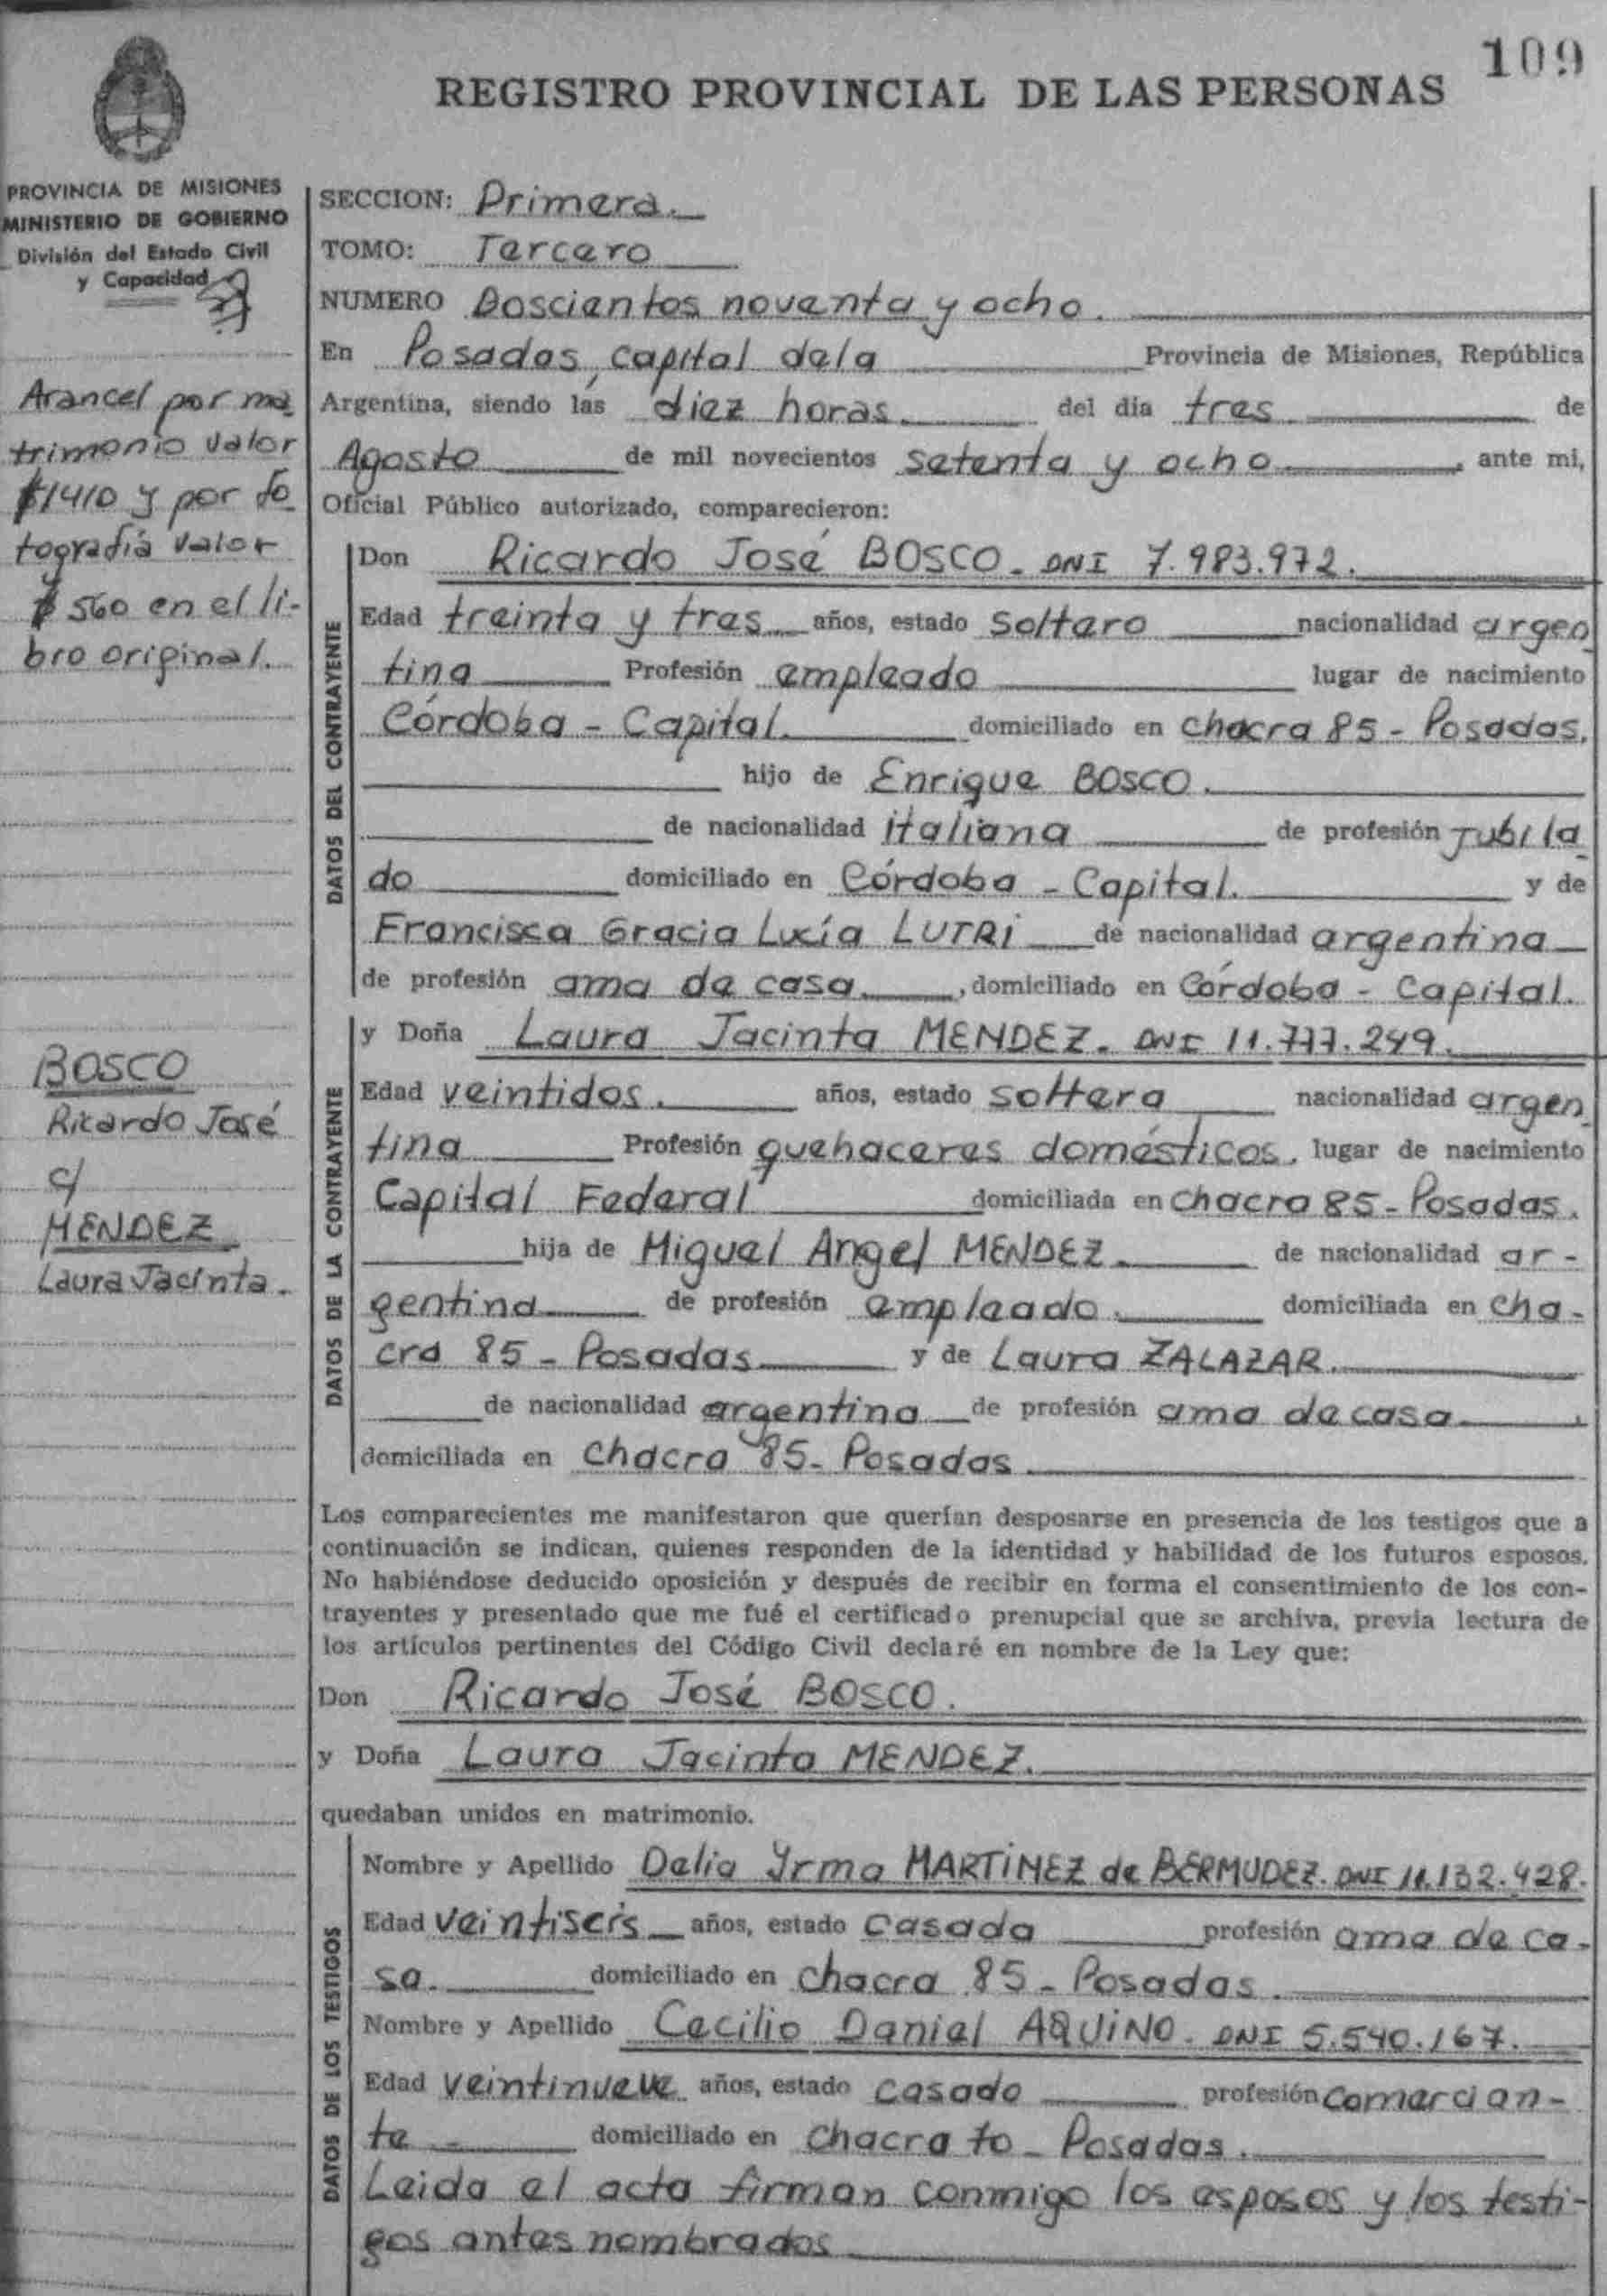 109
REGISTRO PROVINCIAL DE LAS PERSONAS
PROVINCIA DE MISIONES
MINISTERIO DE GOBIERNO
División del Estado Civil
y Capacidad
Arancel por ma
trimonio valor
$1410 y por fo
tografía valor
$ 560 en el li-
bro original.
BOSCO
Ricardo José
c/
MENDEZ
Laura Jacinta.
SECCION: Primera.
TOMO: Tercero
NUMERO Doscientos noventa y ocho.
En Posadas, capital de la Provincia de Misiones, República
Argentina, siendo las diez horas. del día tres de
Agosto de mil novecientos setenta y ocho, ante mi,
Oficial Público autorizado, comparecieron:
DATOS DEL CONTRAYENTE
Don Ricardo José BOSCO. DNI 7.983.972.
Edad treinta y tres años, estado soltero nacionalidad argen
tina Profesión empleado lugar de nacimiento
Córdoba - Capital. domiciliado en chacra 85 - Posadas.
hijo de Enrique BOSCO.
de nacionalidad italiana de profesión jubila
do domiciliado en Córdoba - Capital. y de
Francisca Gracia Lucía LUTRI de nacionalidad argentina
de profesión ama de casa., domiciliado en Córdoba - Capital.
DATOS DE LA CONTRAYENTE
y Doña Laura Jacinta MENDEZ. DNI 11.777.249.
Edad veintidos. años, estado soltera nacionalidad argen
tina Profesión quehaceres domésticos. lugar de nacimiento
Capital Federal domiciliada en chacra 85 - Posadas.
hija de Miguel Angel MENDEZ. de nacionalidad ar-
gentina de profesión empleado. domiciliada en cha-
cra 85 - Posadas y de Laura ZALAZAR.
de nacionalidad argentina de profesión ama de casa.,
domiciliada en chacra 85 - Posadas
Los comparecientes me manifestaron que querían desposarse en presencia de los testigos que a
continuación se indican, quienes responden de la identidad y habilidad de los futuros esposos.
No habiéndose deducido oposición y después de recibir en forma el consentimiento de los con-
trayentes y presentado que me fué el certificado prenupcial que se archiva, previa lectura de
los artículos pertinentes del Código Civil declaré en nombre de la Ley que:
Don Ricardo José BOSCO.
y Doña Laura Jacinta MENDEZ.
quedaban unidos en matrimonio.
DATOS DE LOS TESTIGOS
Nombre y Apellido Delia Yrma MARTiNEZ de BERMUDEZ. DNI 11.132.428.
Edad veintiseis años, estado casada profesión ama de ca-
sa. domiciliado en chacra 85 - Posadas.
Nombre y Apellido Cecilio Daniel AQUiNO. DNI 5.540.167.
Edad veintinueve años, estado casado profesión comercian-
te - domiciliado en chacra to - Posadas.
Leida el acta firman conmigo los esposos y los testi-
gos antes nombrados